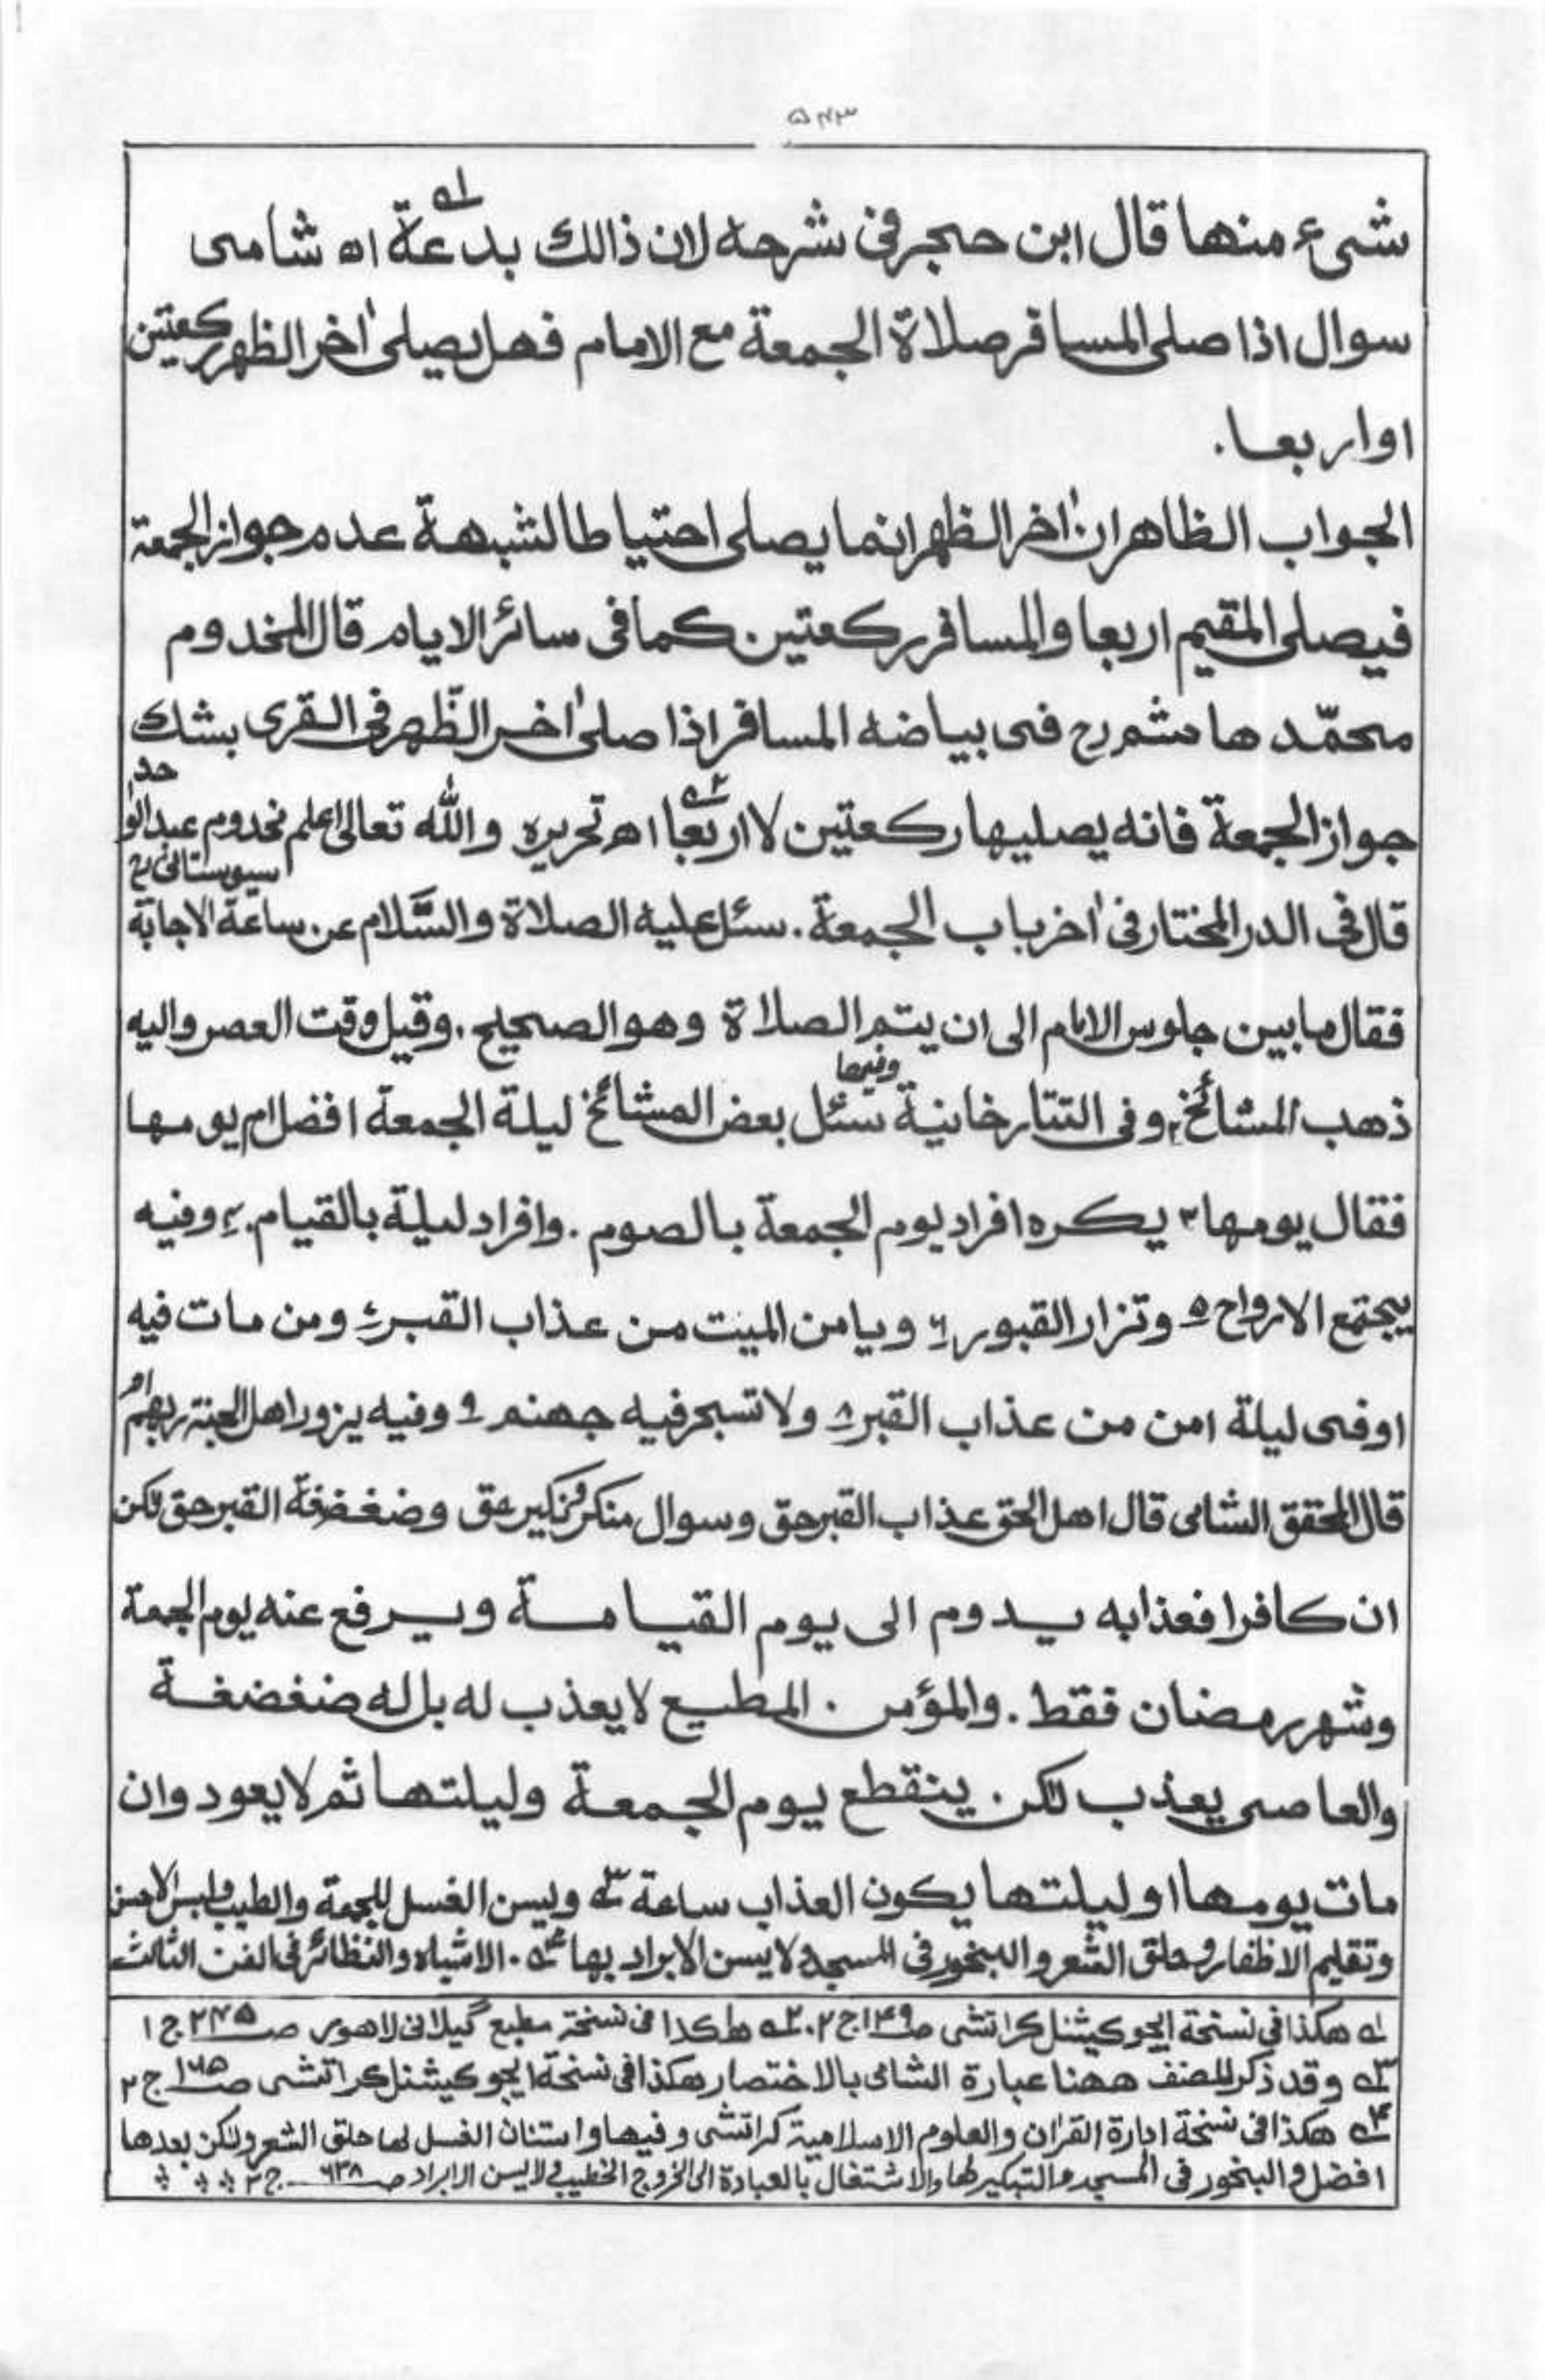 ۵۴۳
شیء منها قال ابن حجر فی شرحه لان ذالك بدعة اه شامی
سوال اذا صلی المسافر صلاة الجمعة مع الامام فهل یصلی اٰخر الظهر رکعتین
او اربعا.
الجواب الظاهر ان اٰخر الظهر انما یصلی احتیاطا لشبهة عدم جواز الجمعة
فیصلی المقیم اربعا والمسافر رکعتین کما فی سائر الایام قال المخدوم
محمّد هاشم رح فی بیاضه المسافر اذا صلی اٰخر الظّهر فی القری بشك
جواز الجمعة فانه یصلیها رکعتین لا اربعا اه تحریره والله تعالی اعلم مخدوم عبدالواحد
سیوستانی رح
قال فی الدر المختار فی اٰخر باب الجمعة. سئل علیه الصلاة والسَّلام عن ساعة الاجابة
فقال ما بین جلوس الامام الی ان یتم الصلاة وهو الصحیح. وقیل وقت العصر والیه
ذهب المشائخ ۲ وفی التتارخانیة وفیها سئل بعض المشائخ لیلة الجمعة افضل ام یومها
فقال یومها ۳ یکره افراد یوم الجمعة بالصوم. وافراد لیلة بالقیام. ۴ وفیه
یجتمع الارواح ۵ وتزار القبور ۶ ویامن المیت من عذاب القبر ۷ ومن مات فیه
او فی لیلة امن من عذاب القبر ۸ ولا تسجر فیه جهنم ۹ وفیه یزور اهل الجنة ربهم اه
قال المحقق الشامی قال اهل الحق عذاب القبر حق وسوال منکر ونکیر حق وضغضغة القبر حق لکن
ان کافرا فعذابه یدوم الی یوم القیامة ویرفع عنه یوم الجمعة
وشهر رمضان فقط. والمؤمن المطیع لا یعذب له بل له ضغضغة
والعاصی یعذب لکن ینقطع یوم الجمعة ولیلتها ثم لا یعود وان
مات یومها او لیلتها یکون العذاب ساعة ۳ ویسن الغسل للجمعة والطیب ولبس الاحسن
وتقلیم الاظفار وحلق الشعر والبخور فی المسجد ولا یسن الابراد بها ۴. الاشباه والنظائر فی الفن الثالث
۱ هکذا فی نسخة ایجوکیشنل کراتشی ص ۱۴۹ ج ۲. ۲ هاکذا فی نسخة مطبع گیلانی لاهور ص ۲۴۵ ج ۱
۳ وقد ذکر المصنف ههنا عبارة الشامی بالاختصار هکذا فی نسخة ایجوکیشنل کراتشی ص ۱۶۵ ج ۲
۴ هکذا فی نسخة ادارة القراٰن والعلوم الاسلامیة کراتشی وفیها واستنان الغسل لها حلق الشعر ولکن بعدها
افضل والبخور فی المسجد والتبکیر لها والاشتغال بالعبادة الی الخروج الخطیب ولا یسن الابراد ص ۶۳۸ ج ۲